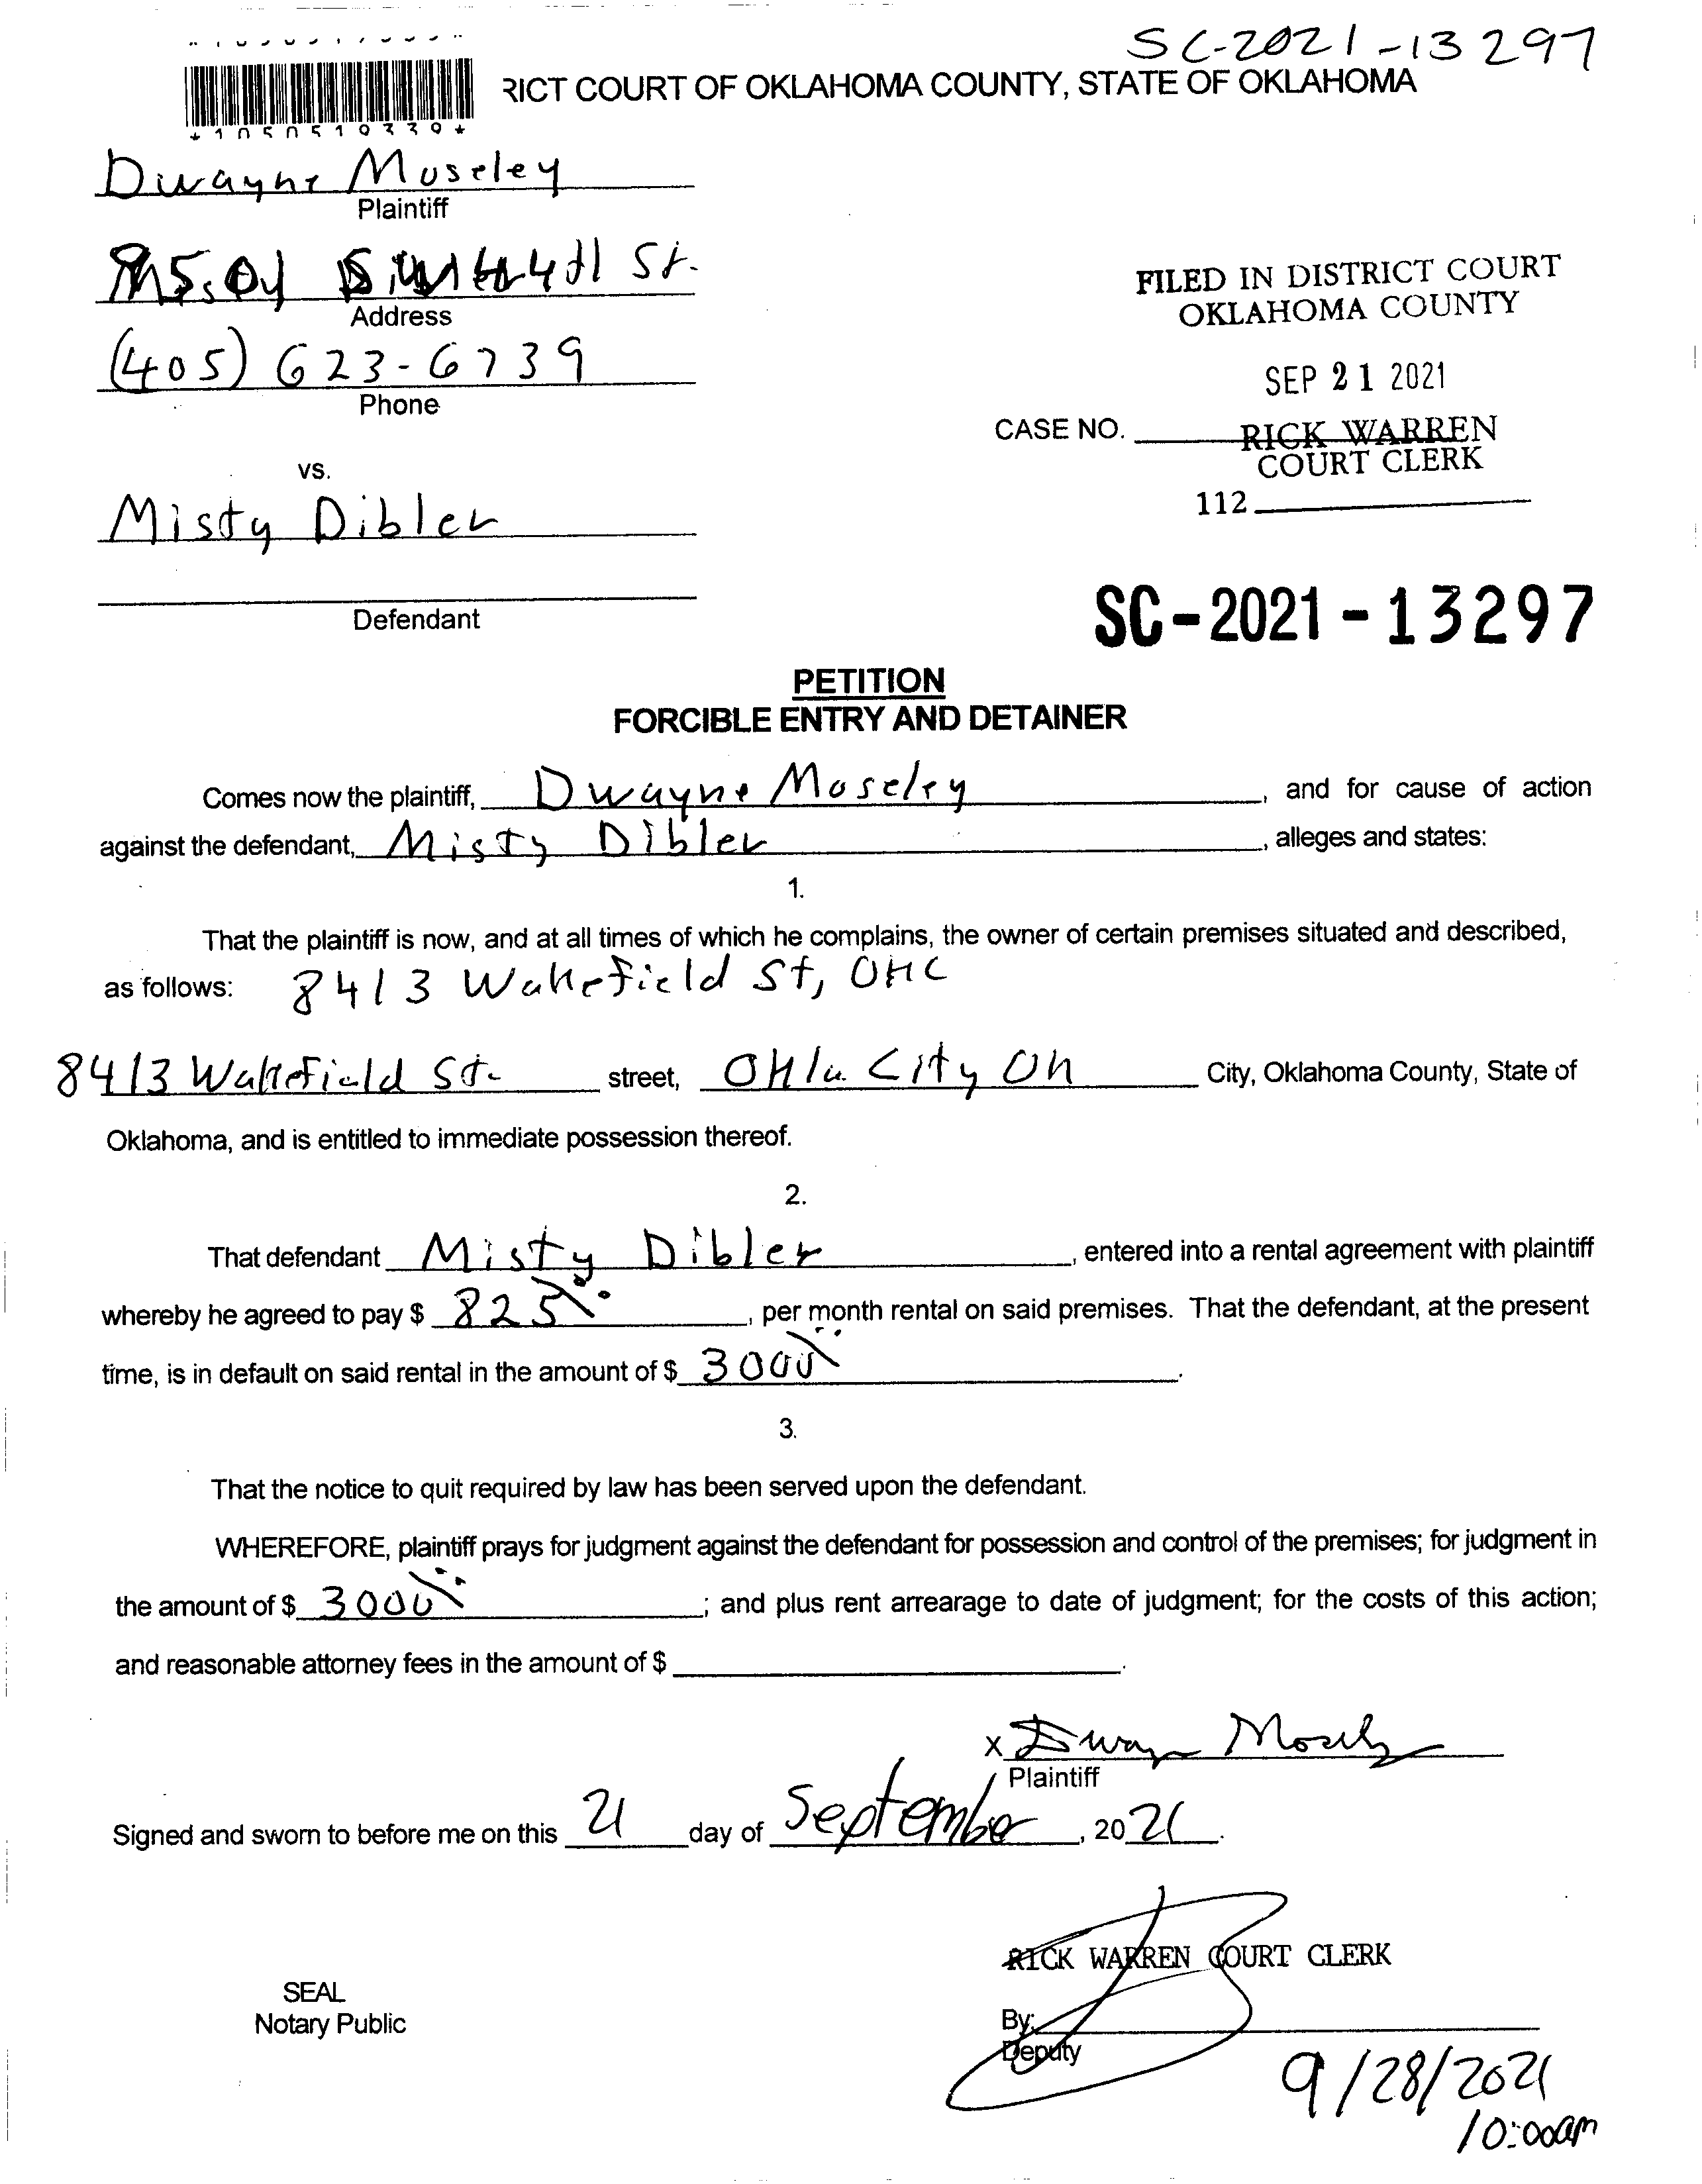 SC-2021-13297
RICT COURT OF OKLAHOMA COUNTY, STATE OF OKLAHOMA
*1050519339*
Dwayne Moseley
Plaintiff
St.
Address
(405) 623-6739
Phone
FILED IN DISTRICT COURT
OKLAHOMA COUNTY
SEP 21 2021
CASE NO. RICK WARREN
COURT CLERK
112
vs.
Misty Dibler
Defendant
SC-2021-13297
PETITION
FORCIBLE ENTRY AND DETAINER
Comes now the plaintiff, Dwayne Moseley, and for cause of action
against the defendant, Misty Dibler, alleges and states:
1.
That the plaintiff is now, and at all times of which he complains, the owner of certain premises situated and described,
as follows: 8413 Wakefield St, OKC
8413 Wakefield St. street, Okla City Ok City, Oklahoma County, State of
Oklahoma, and is entitled to immediate possession thereof.
2.
That defendant Misty Dibler, entered into a rental agreement with plaintiff
whereby he agreed to pay $ 825, per month rental on said premises. That the defendant, at the present
time, is in default on said rental in the amount of $ 3000.
3.
That the notice to quit required by law has been served upon the defendant.
WHEREFORE, plaintiff prays for judgment against the defendant for possession and control of the premises; for judgment in
the amount of $ 3000; and plus rent arrearage to date of judgment; for the costs of this action;
and reasonable attorney fees in the amount of $
x Dwayne Moseley
Plaintiff
Signed and sworn to before me on this 21 day of September, 2021.
RICK WARREN COURT CLERK
SEAL
Notary Public
By:
Deputy
9/28/2021
10:00am